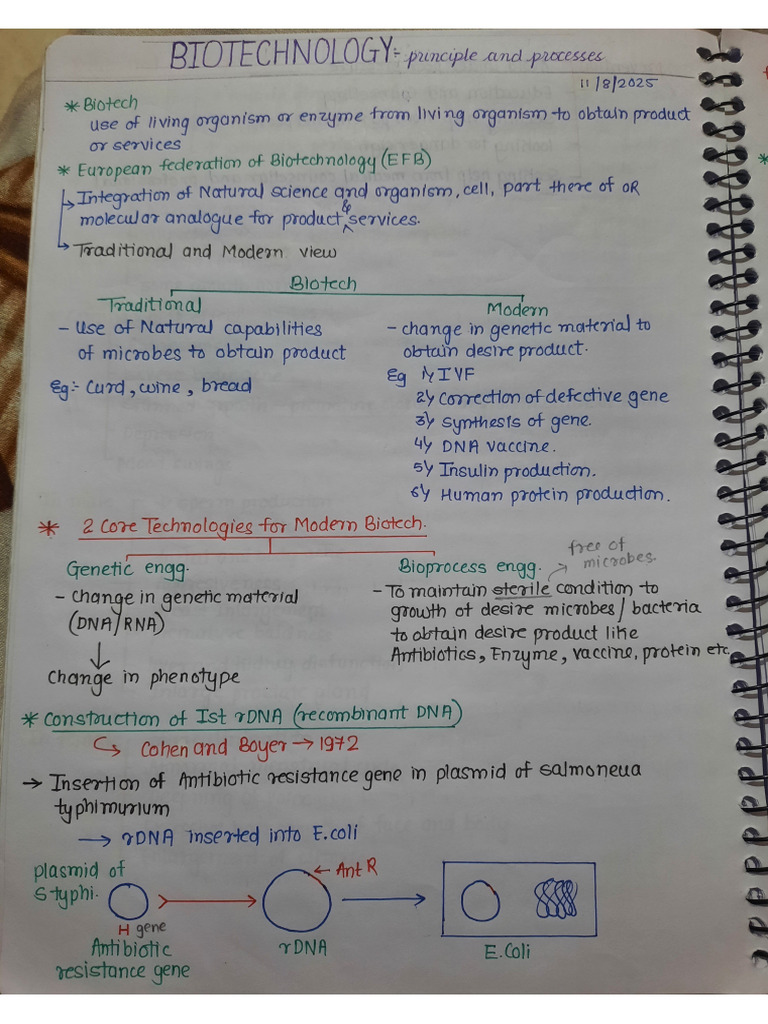 BIOTECHNOLOGY:- principle and processes
11/8/2025
* Biotech
use of living organism or enzyme from living organism to obtain product
or services
* European federation of Biotechnology (EFB)
↳ Integration of Natural science and organism, cell, part there of OR
molecular analogue for product & services.
↳ Traditional and Modern view
Biotech
Traditional
- Use of Natural capabilities
of microbes to obtain product
Eg:- Curd, wine, bread
Modern
- change in genetic material to
obtain desire product.
Eg 1) IVF
2) Correction of defective gene
3) Synthesis of gene.
4) DNA vaccine.
5) Insulin production.
6) Human protein production.
* 2 Core Technologies for Modern Biotech.
Genetic engg.
- change in genetic material
(DNA/RNA)
↓
Change in phenotype
Bioprocess engg.
free of
microbes.
- To maintain sterile condition to
growth of desire microbes/bacteria
to obtain desire product like
Antibiotics, Enzyme, vaccine, protein etc.
* Construction of Ist rDNA (recombinant DNA)
↳ Cohen and Boyer → 1972
→ Insertion of Antibiotic resistance gene in plasmid of salmonella
typhimurium
→ rDNA inserted into E.coli
plasmid of
S typhi.
H gene
Antibiotic
resistance gene
← Ant R
rDNA
E.Coli